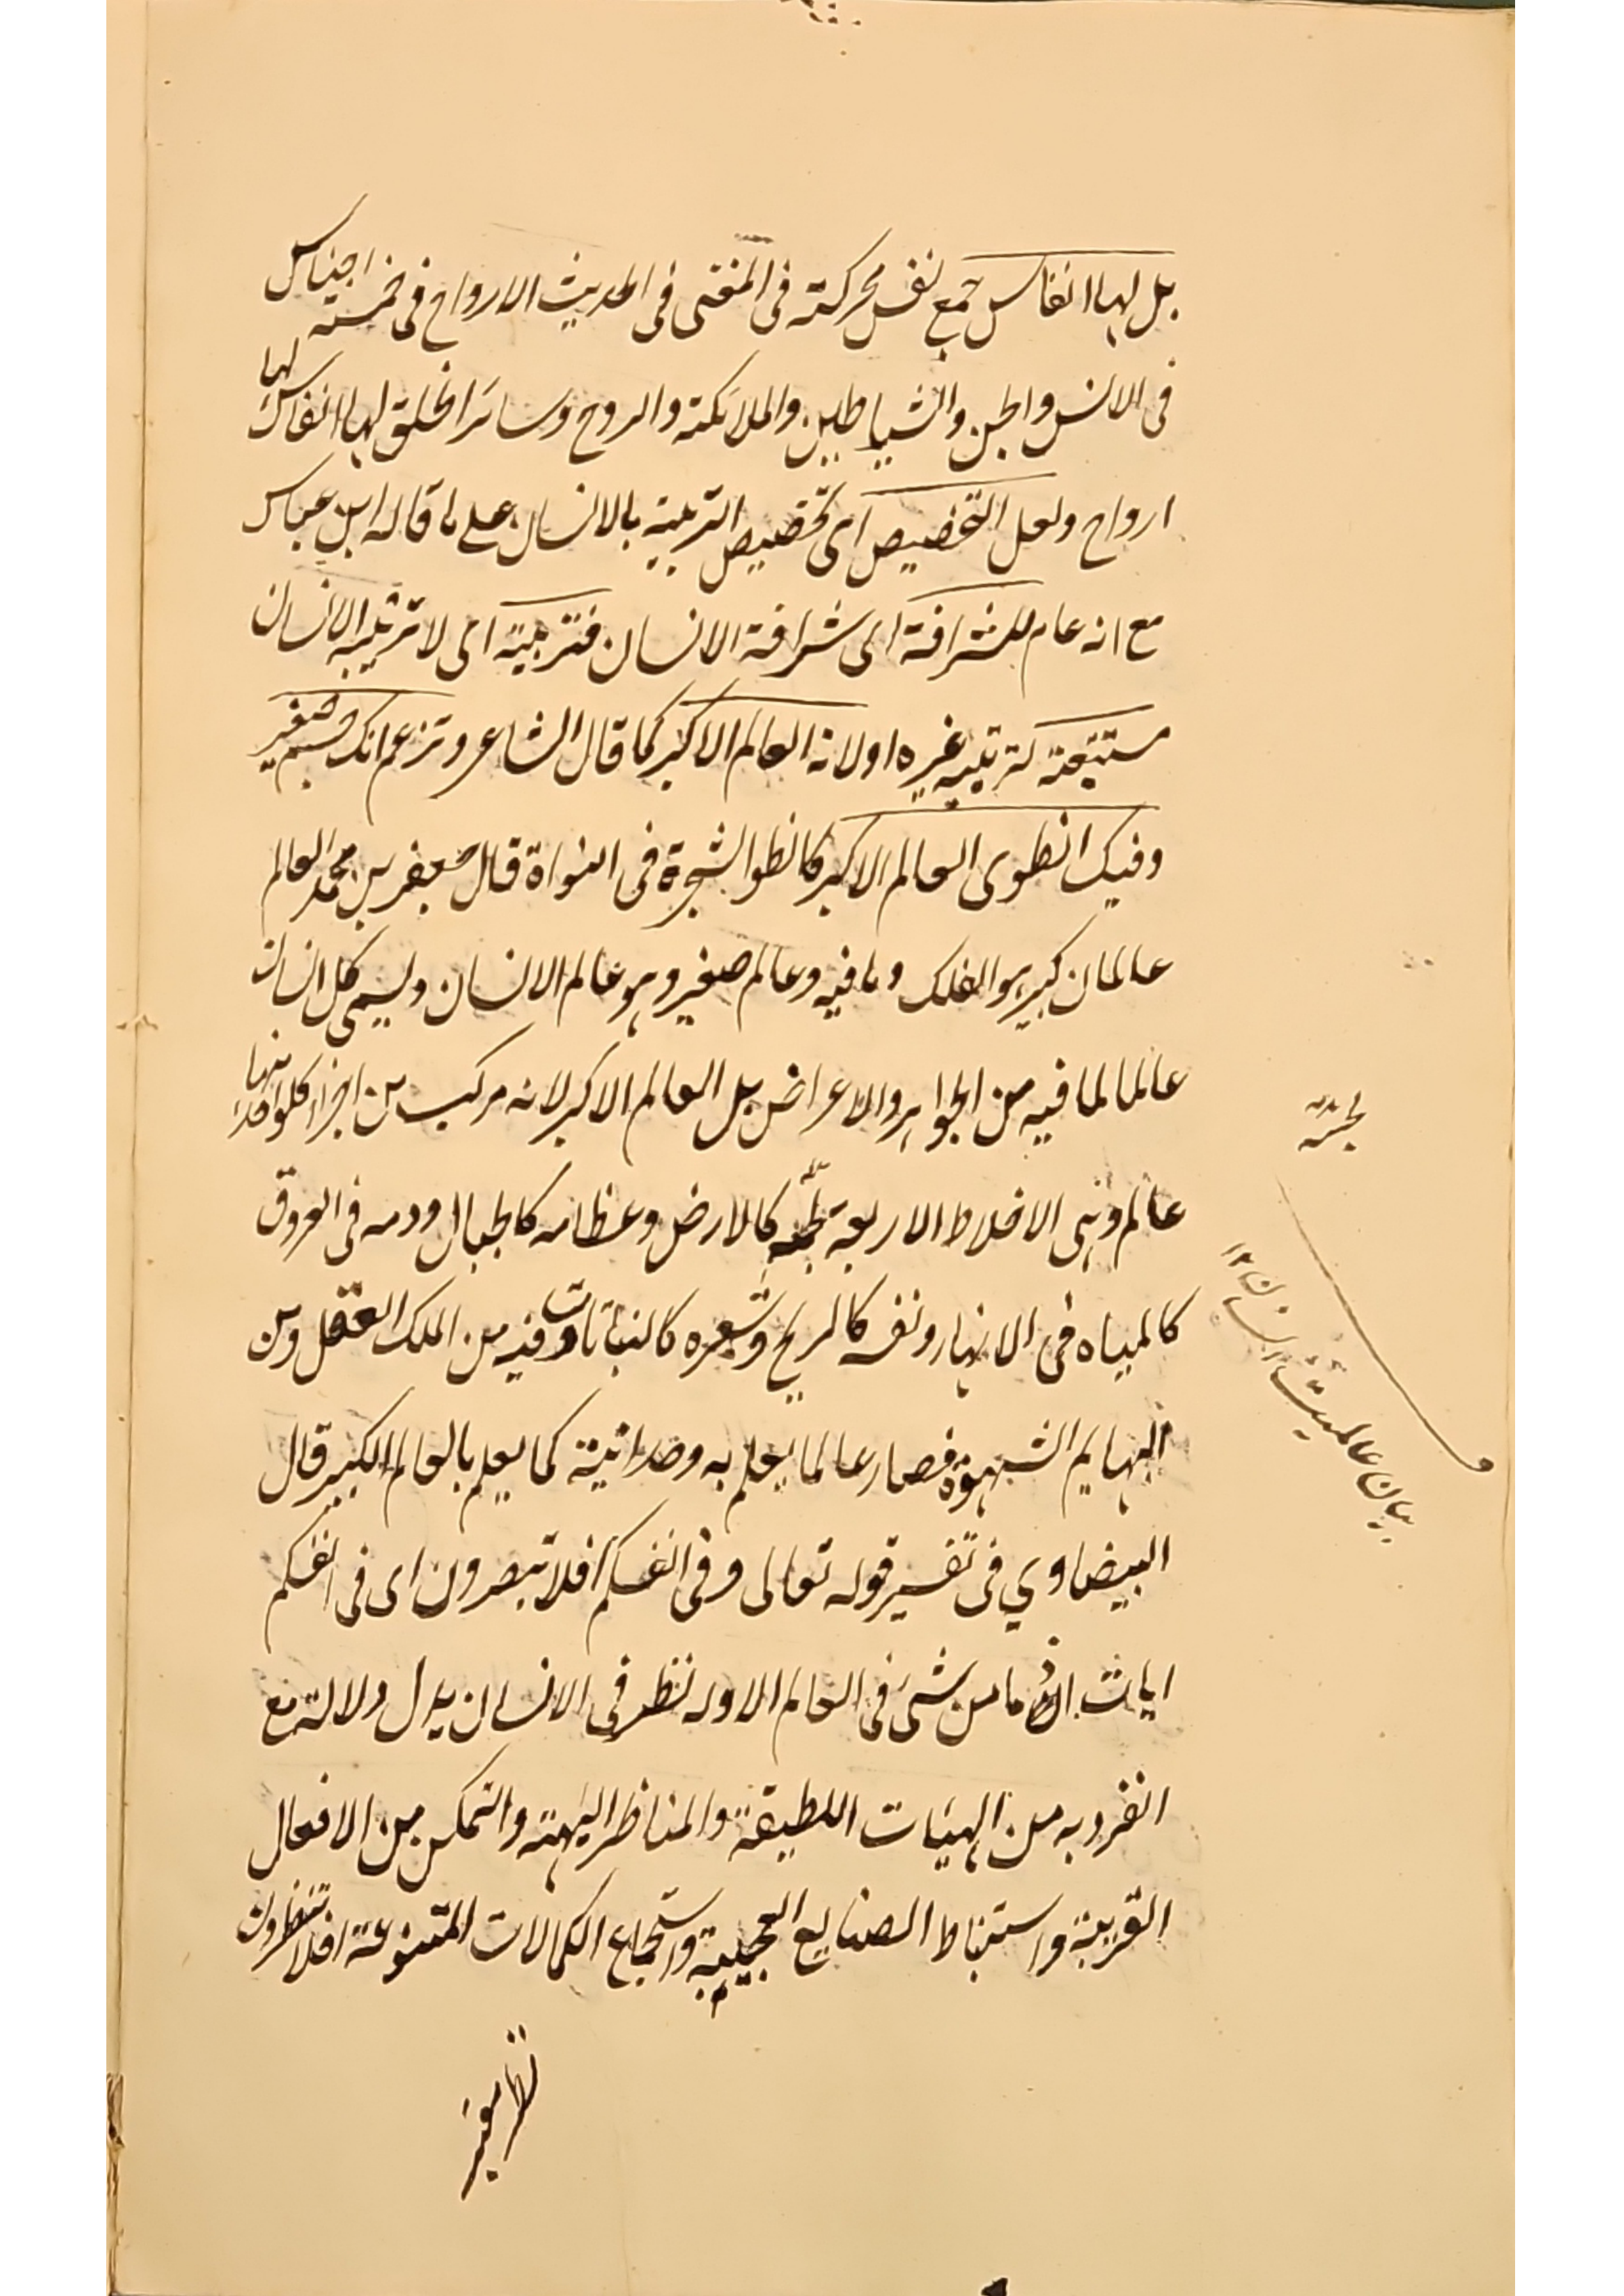 بل لها انفاس جمع نفس محركة فى المغنى فى الحديث الارواح فى خمسة اجناس
فى الانس والجن والشياطين والملائكة والروح وسائر الخلق لها انفاس لا لها
ارواح ولعل التخصيص اى تخصيص التربية بالانسان على ما قاله ابن عباس
مع انه عام للشرافة اى شرافة الانسان فتربية اى لا تربية الانسان
مستتبعة لتربية غيره اولانه العالم الاكبر كما قال الشاعر وتزعم انك جسم صغير
وفيك انطوى العالم الاكبر كانطوا الشجرة فى النواة قال جعفر بن محمد العالم
عالمان كبير هو الفلك وما فيه وعالم صغير وهو عالم الانسان ويسمى كل انسان
عالما لما فيه من الجواهر والاعراض بل العالم الاكبر لانه مركب من اجزاء كلواحد منها
عالم وهى الاخلاط الاربعة لحمه كالارض وعظامه كالجبال ودمه فى العروق
كالمياه فى الانهار ونفسه كالريح وشعره كالنباتات وفيه من الملك العقل ومن
البهايم الشهوة فصار عالما يعلم به وحدانيته كما يعلم بالعالم الكبير قال
البيضاوي فى تفسير قوله تعالى وفى انفسكم افلا تبصرون اى فى انفسكم
ايات اذ ما من شئ فى العالم الا وله نظير فى الانسان يدل دلالته مع
انفرد به من الهيئات اللطيفة والمناظر البهية والتمكن من الافعال
الغريبة واستنباط الصنايع العجيبة واستجماع الكمالات المتنوعة افلا تنظرون
نظر
بيان عالميت انسان ١٢